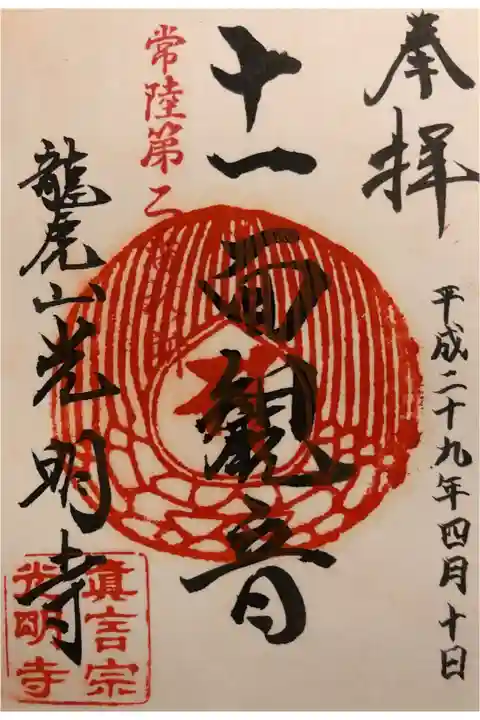 奉拝
平成二十九年四月十日
十一面観音
常陸第二
龍虎山光明寺
真言宗
光明寺